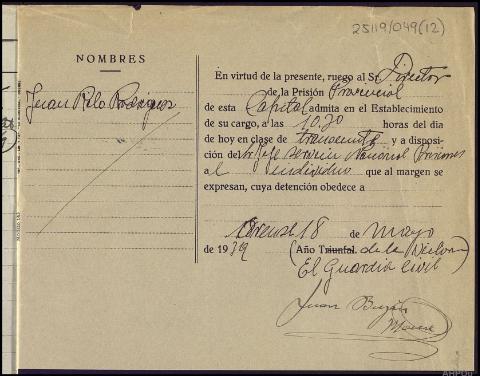 25119/049(12)
NOMBRES
Juan Rilo Rodriguez
En virtud de la presente, ruego al Sr. Director
de la Prisión Provincial
de esta Capital admita en el Establecimiento
de su cargo, a las 10.30 horas del día
de hoy en clase de transeunte y a disposi-
ción del Sr. Jefe Servicio Nacional Prisiones
al individuo que al margen se
expresan, cuya detención obedece a
Orense 18 de Mayo
de 1939 (Año Triunfal. de la Victoria)
El Guardia Civil
Juan
AHPOu